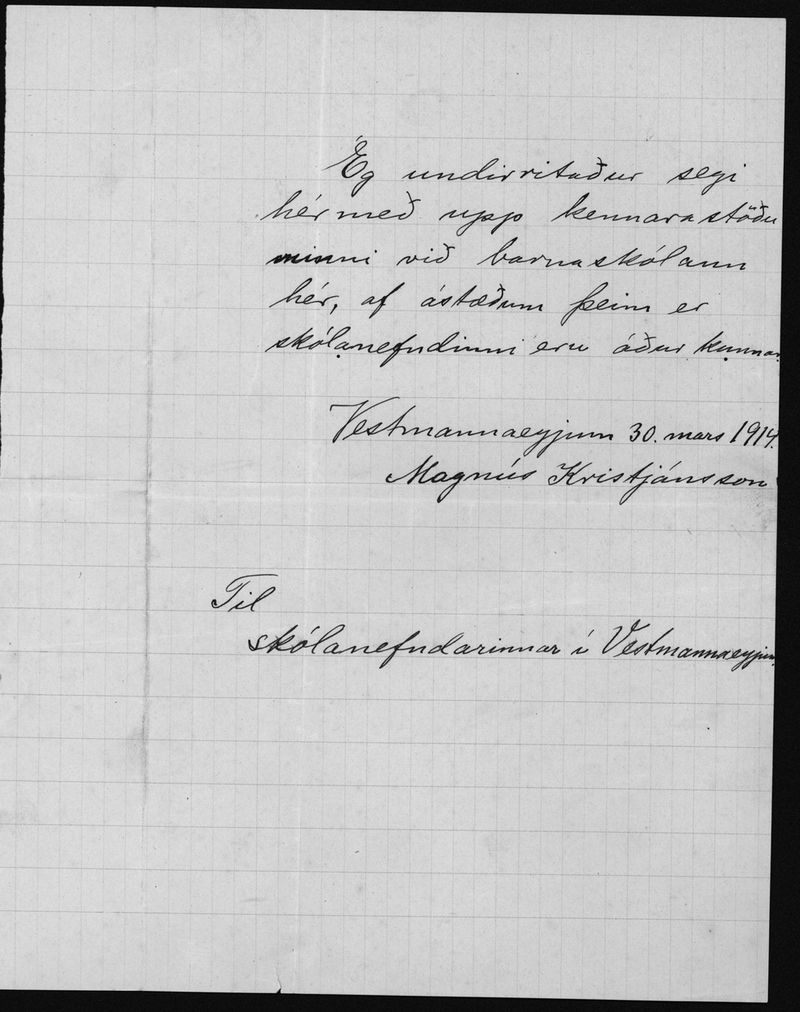 Ég undirritaður segi
hér með upp kennarastöðu
minni við barnaskólann
hér, af ástæðum þeim er
skólanefndinni eru áður kunnar.
Vestmannaeyjum 30. mars 1914.
Magnús Kristjánsson
Til
skólanefndarinnar í Vestmannaeyjum.